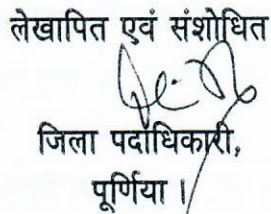 लेखापित एवं संशोधित
जिला पदाधिकारी,
पूर्णिया ।